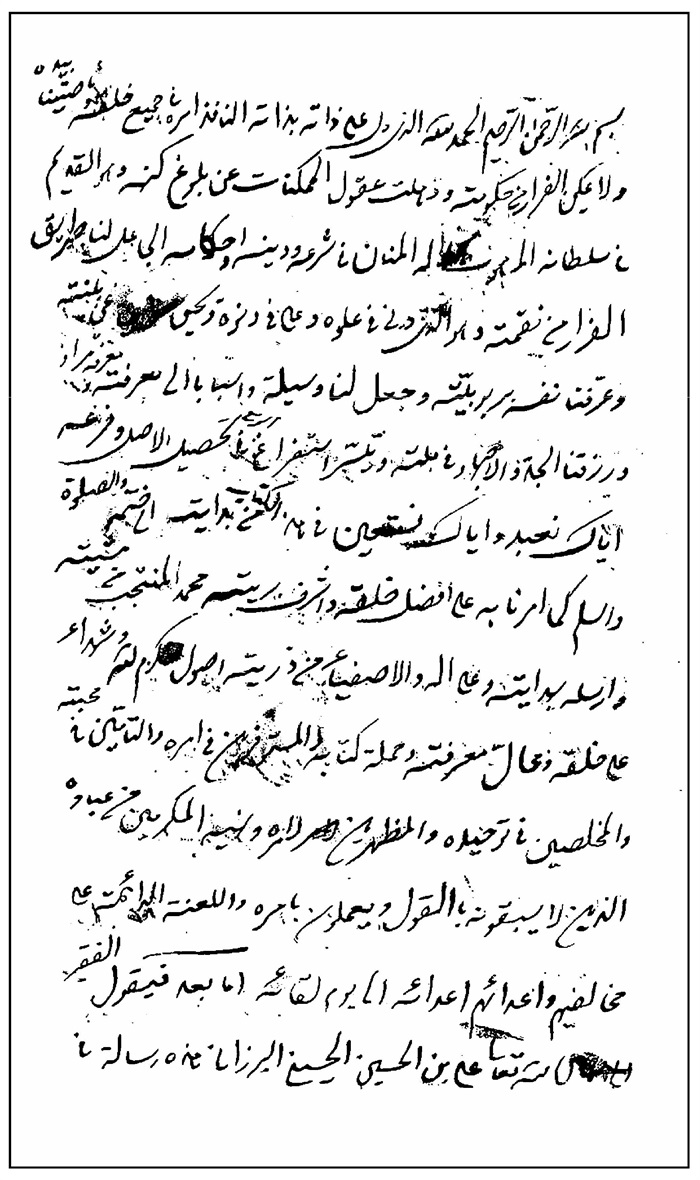 بسم الله الرحمن الرحيم الحمد لله الذي دل على ذاته بذاته النافذ امره في جميع خلقه
ولا يمكن الفرار من حكومته وذهلت عقول الممكنات عن بلوغ كنهه وهو القديم
في سلطانه المنان في شرعه ودينه واحكامه الجاعل لنا طريق
الفرار من نقمته وهو الذي دنى في علوه وعلى في دنوه
وعرفنا نفسه بربوبيته وجعل لنا وسيلة واسبابا الى معرفته
ورزقنا الجد والاجتهاد في ملته وتيسر استفراغ لتحصيل الاصل وفرعه
اياك نعبد واياك نستعين في هذا الكتاب من بدايته الى ختمه والصلوة
والسلم كما امرنا به على افضل خلقه واشرف بريته محمد المنتجب من
وارسله بهدايته وعلى اله والاصفياء من ذريته اصول وشهداء
على خلقه ومحال معرفته وحملة كتابه والمستقرين في امره والتامين في محبته
والمخلصين في توحيده والمظهرين لامره ونهيه المكرمين من عباده
الذين لا يسبقونه بالقول ويعملون بامره واللعنة الدائمة على
مخالفيهم واعدائهم اعدائه الى يوم لقائه اما بعد فيقول الفقير
الله تعالى علي بن الحسين الحسيني هذه رسالة في